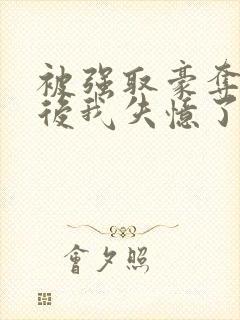 被強取豪奪
後我失憶了
會夕照